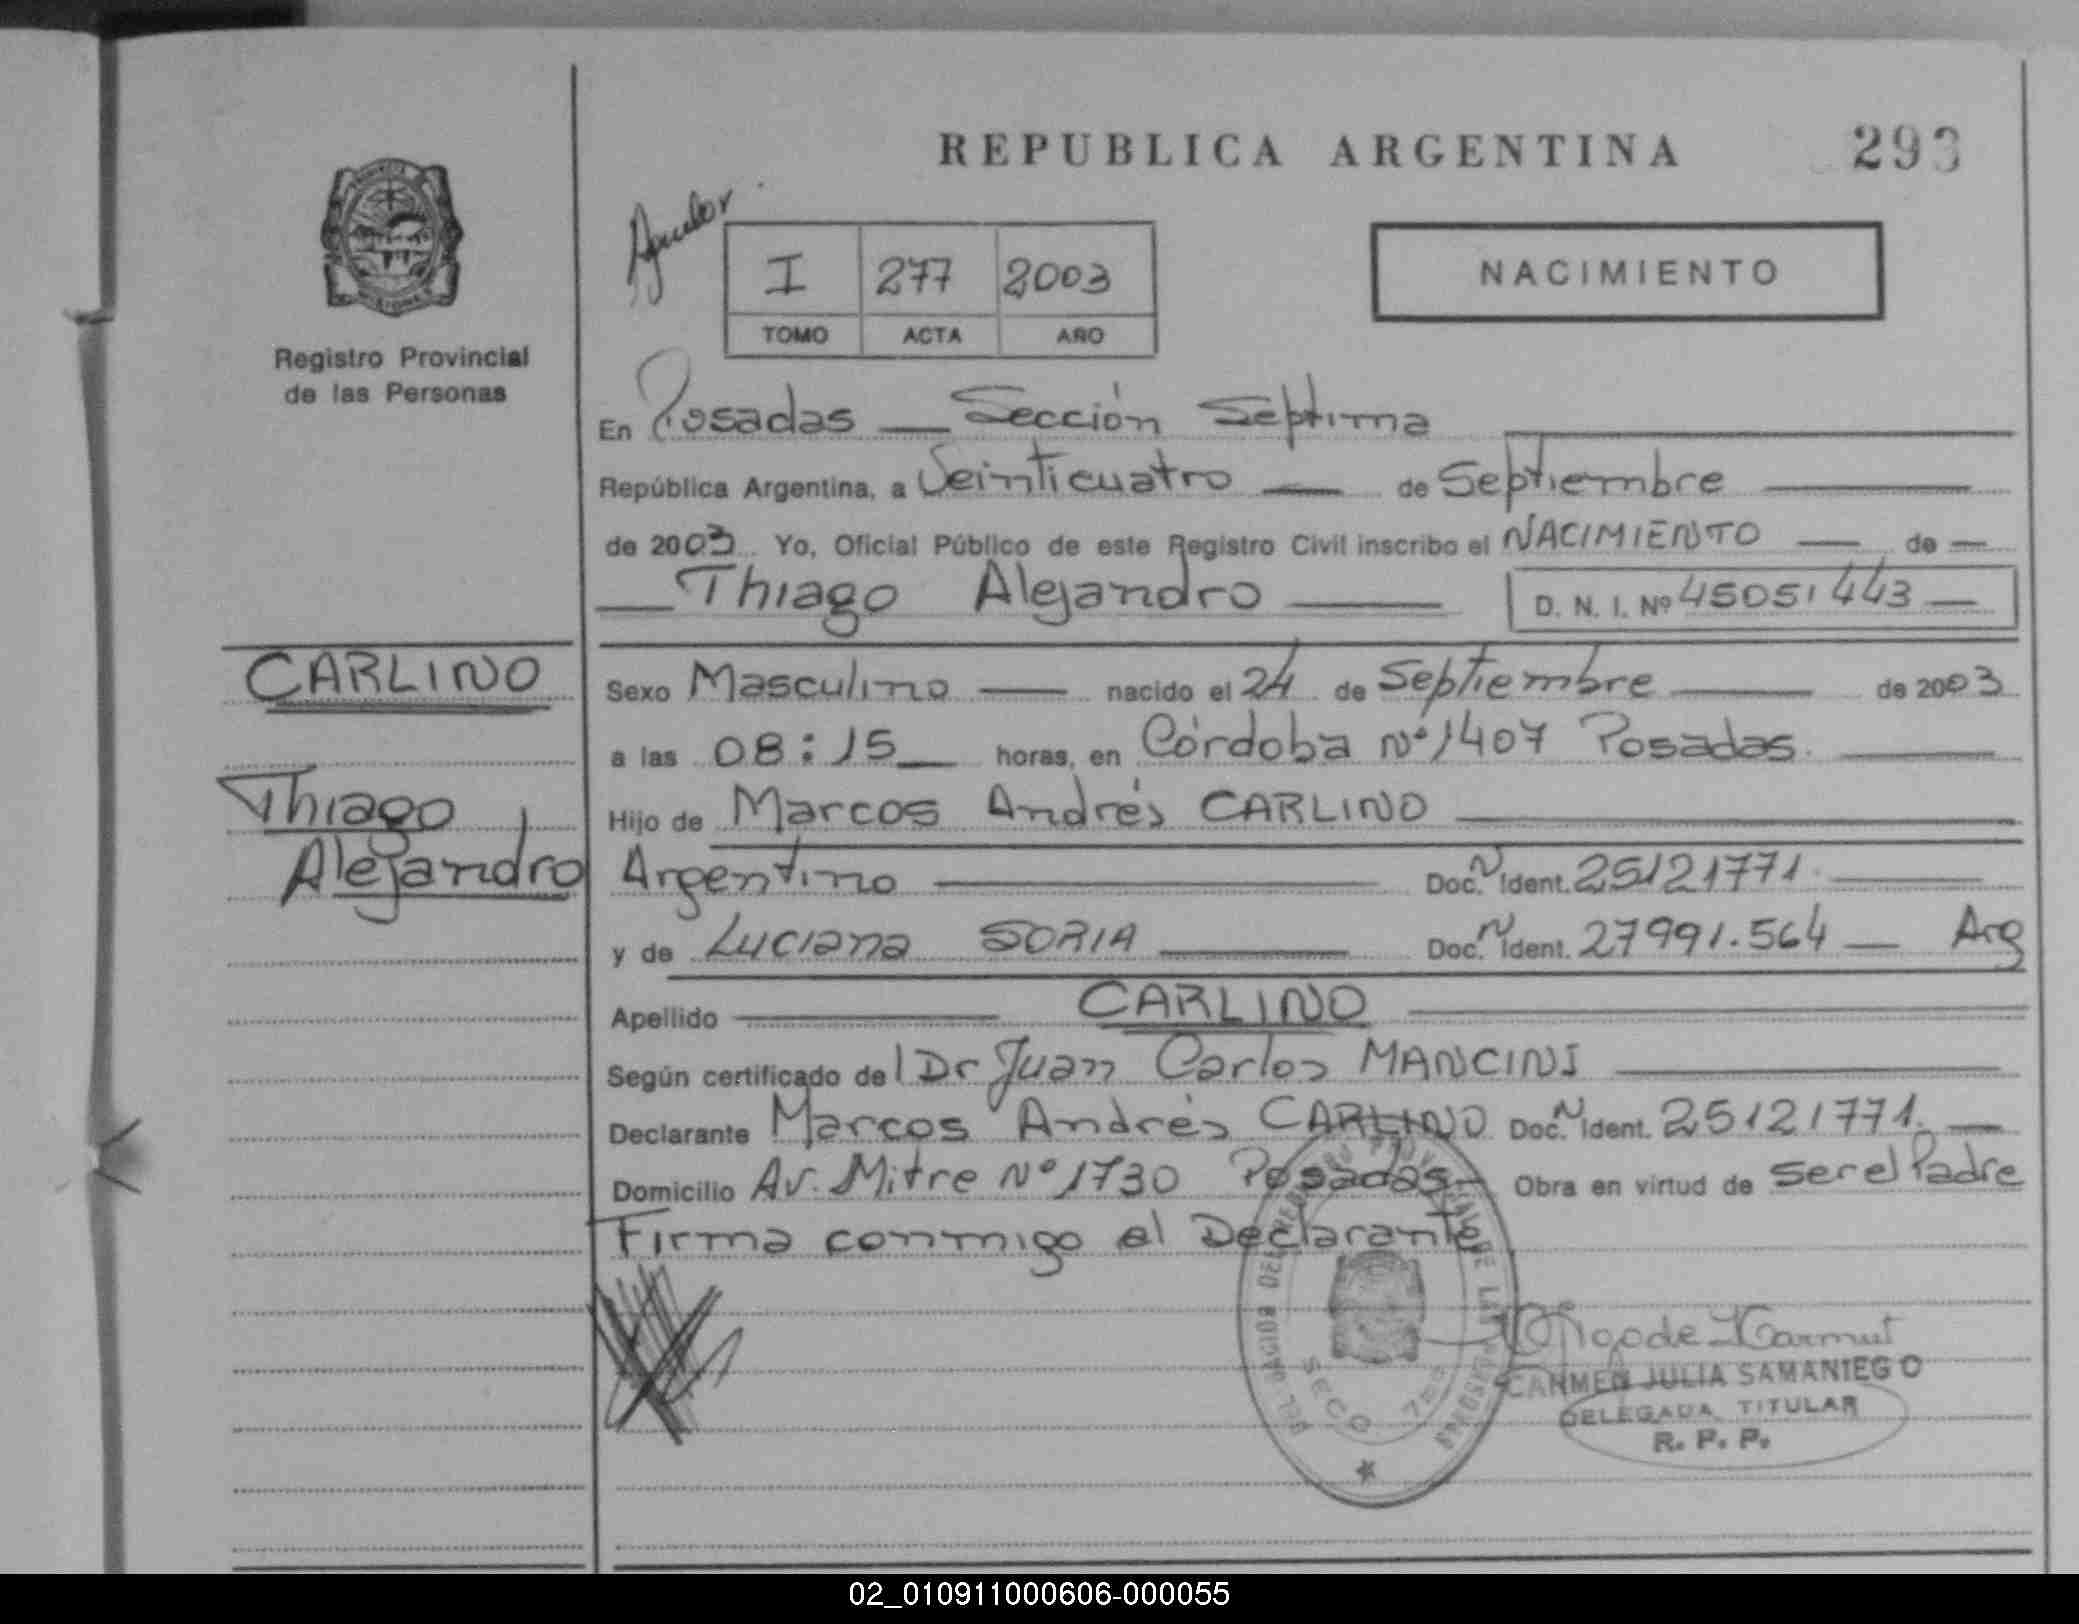 REPUBLICA ARGENTINA
293
I 277 2003
TOMO ACTA AÑO
NACIMIENTO
Registro Provincial
de las Personas
En Posadas — Sección Septima
República Argentina, a Veinticuatro — de Septiembre
de 2003 Yo, Oficial Público de este Registro Civil inscribo el NACIMIENTO — de —
Thiago Alejandro — D. N. I. Nº 45051443 —
CARLINO
Thiago
Alejandro
Sexo Masculino — nacido el 24 de Septiembre — de 2003
a las 08:15 horas, en Córdoba Nº 1407 Posadas.
Hijo de Marcos Andrés CARLINO
Argentino — Doc. N Ident. 25121771. —
y de Luciana SORIA — Doc. N Ident. 27991.564 — Arg
Apellido — CARLINO
Según certificado del Dr Juan Carlos MANCINI
Declarante Marcos Andrés CARLINO Doc. N Ident. 25121771. —
Domicilio Av. Mitre Nº 1730 Posadas — Obra en virtud de ser el Padre
Firma conmigo el Declarante
CARMEN JULIA SAMANIEGO
DELEGADA TITULAR
R. P. P.
02_010911000606-000055